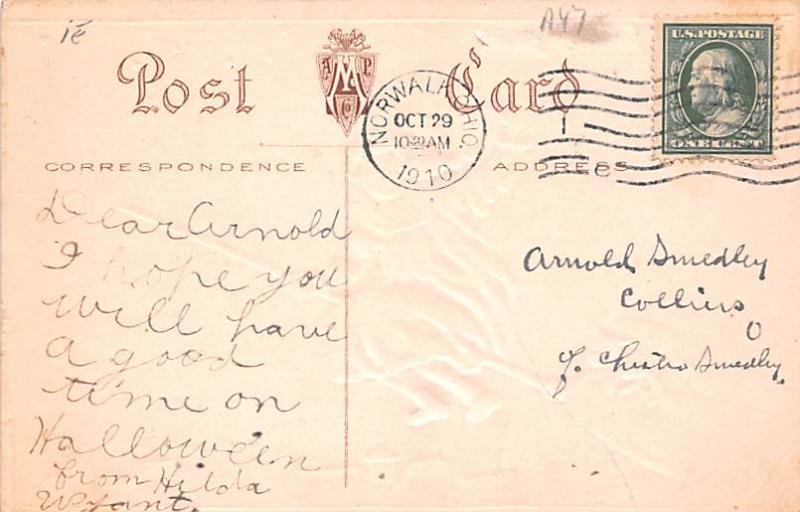 ié
A47
Post Card
A M P
Co
U.S. POSTAGE
ONE CENT
NORWALK, OHIO.
OCT 29
10 30 AM
1910
CORRESPONDENCE
ADDRESS
Dear Arnold
I hope you
will have
a good
time on
Halloween
from Hilda
Wyant.
Arnold Smedley
Collins
O
Smedley.